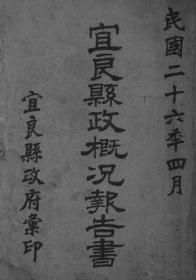 民國二十六年四月
宜良縣政概況報告書
宜良縣政府彙印